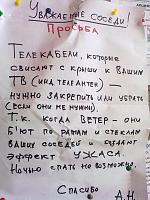 УВАЖАЕМЫЕ СОСЕДИ!
ПРОСЬБА
ТЕЛЕКАБЕЛИ, КОТОРЫЕ
СВИСАЮТ С КРЫШИ К ВАШИМ
ТВ (ИНД. ТЕЛЕАНТЕН) —
НУЖНО ЗАКРЕПИТЬ ИЛИ УБРАТЬ
(ЕСЛИ ОНИ НЕ НУЖНЫ)
Т.К. КОГДА ВЕТЕР - ОНИ
БЬЮТ ПО РАМАМ И СТЕКЛАМ
ВАШИХ СОСЕДЕЙ И СОЗДАЮТ
ЭФФЕКТ УЖАСА.
НОЧЬЮ СПАТЬ НЕВОЗМОЖНО.
СПАСИБО
А.Н.